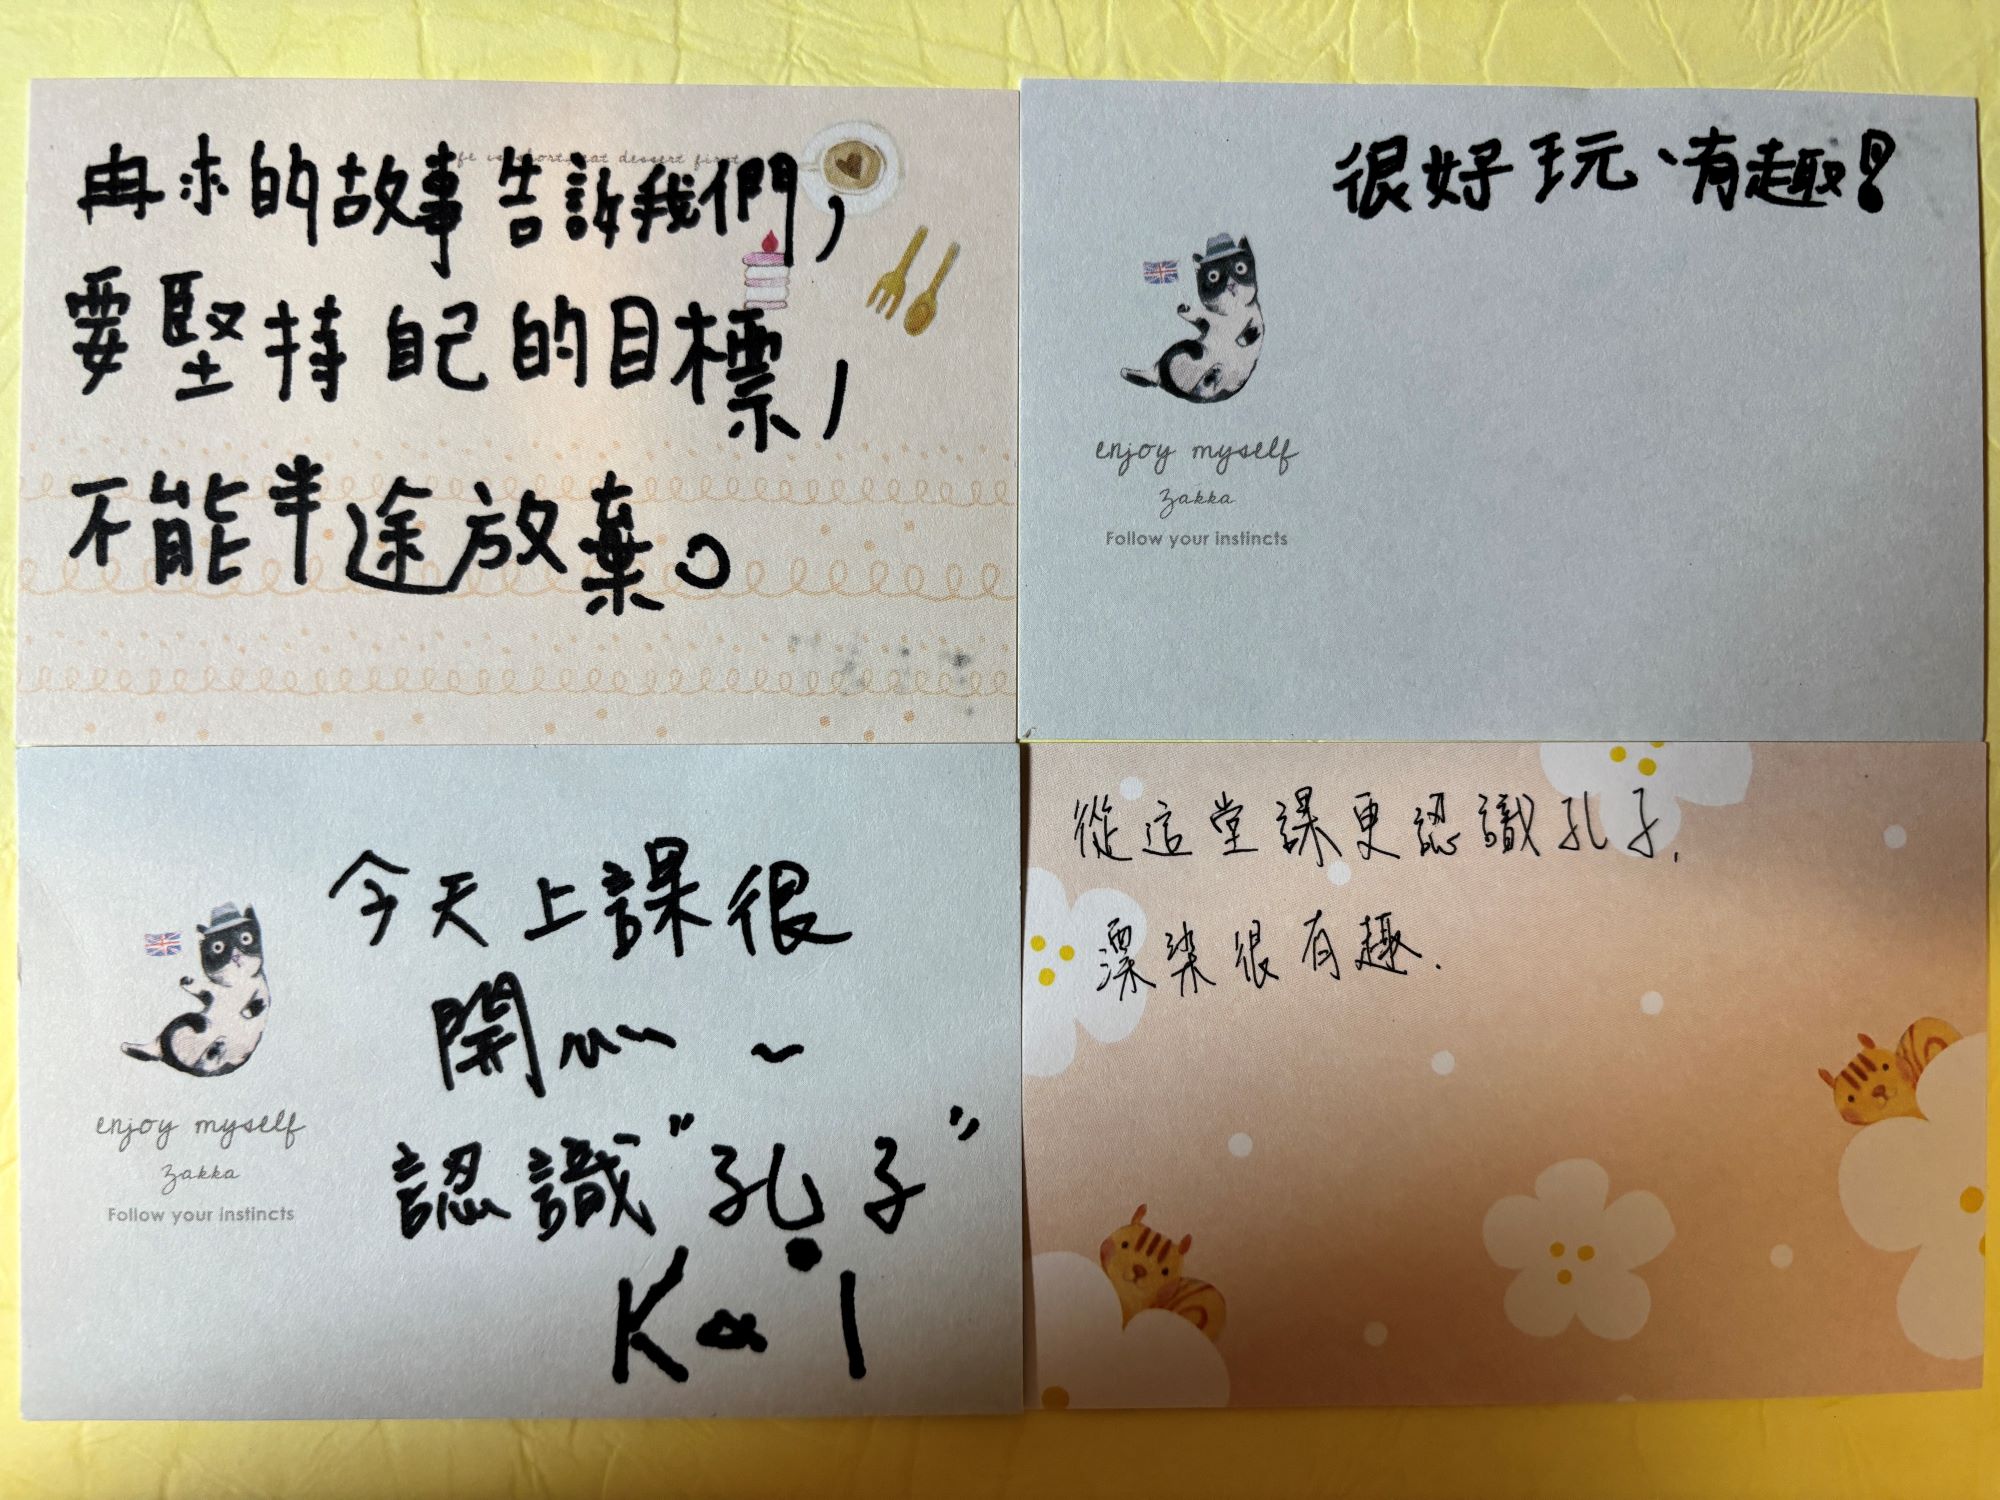 冉求的故事告訴我們,
要堅持自己的目標,
不能半途放棄。
很好玩、有趣!
enjoy myself
zakka
Follow your instincts
今天上課很
開心~
認識"孔子"
Kai
enjoy myself
zakka
Follow your instincts
從這堂課更認識孔子.
漂染很有趣.